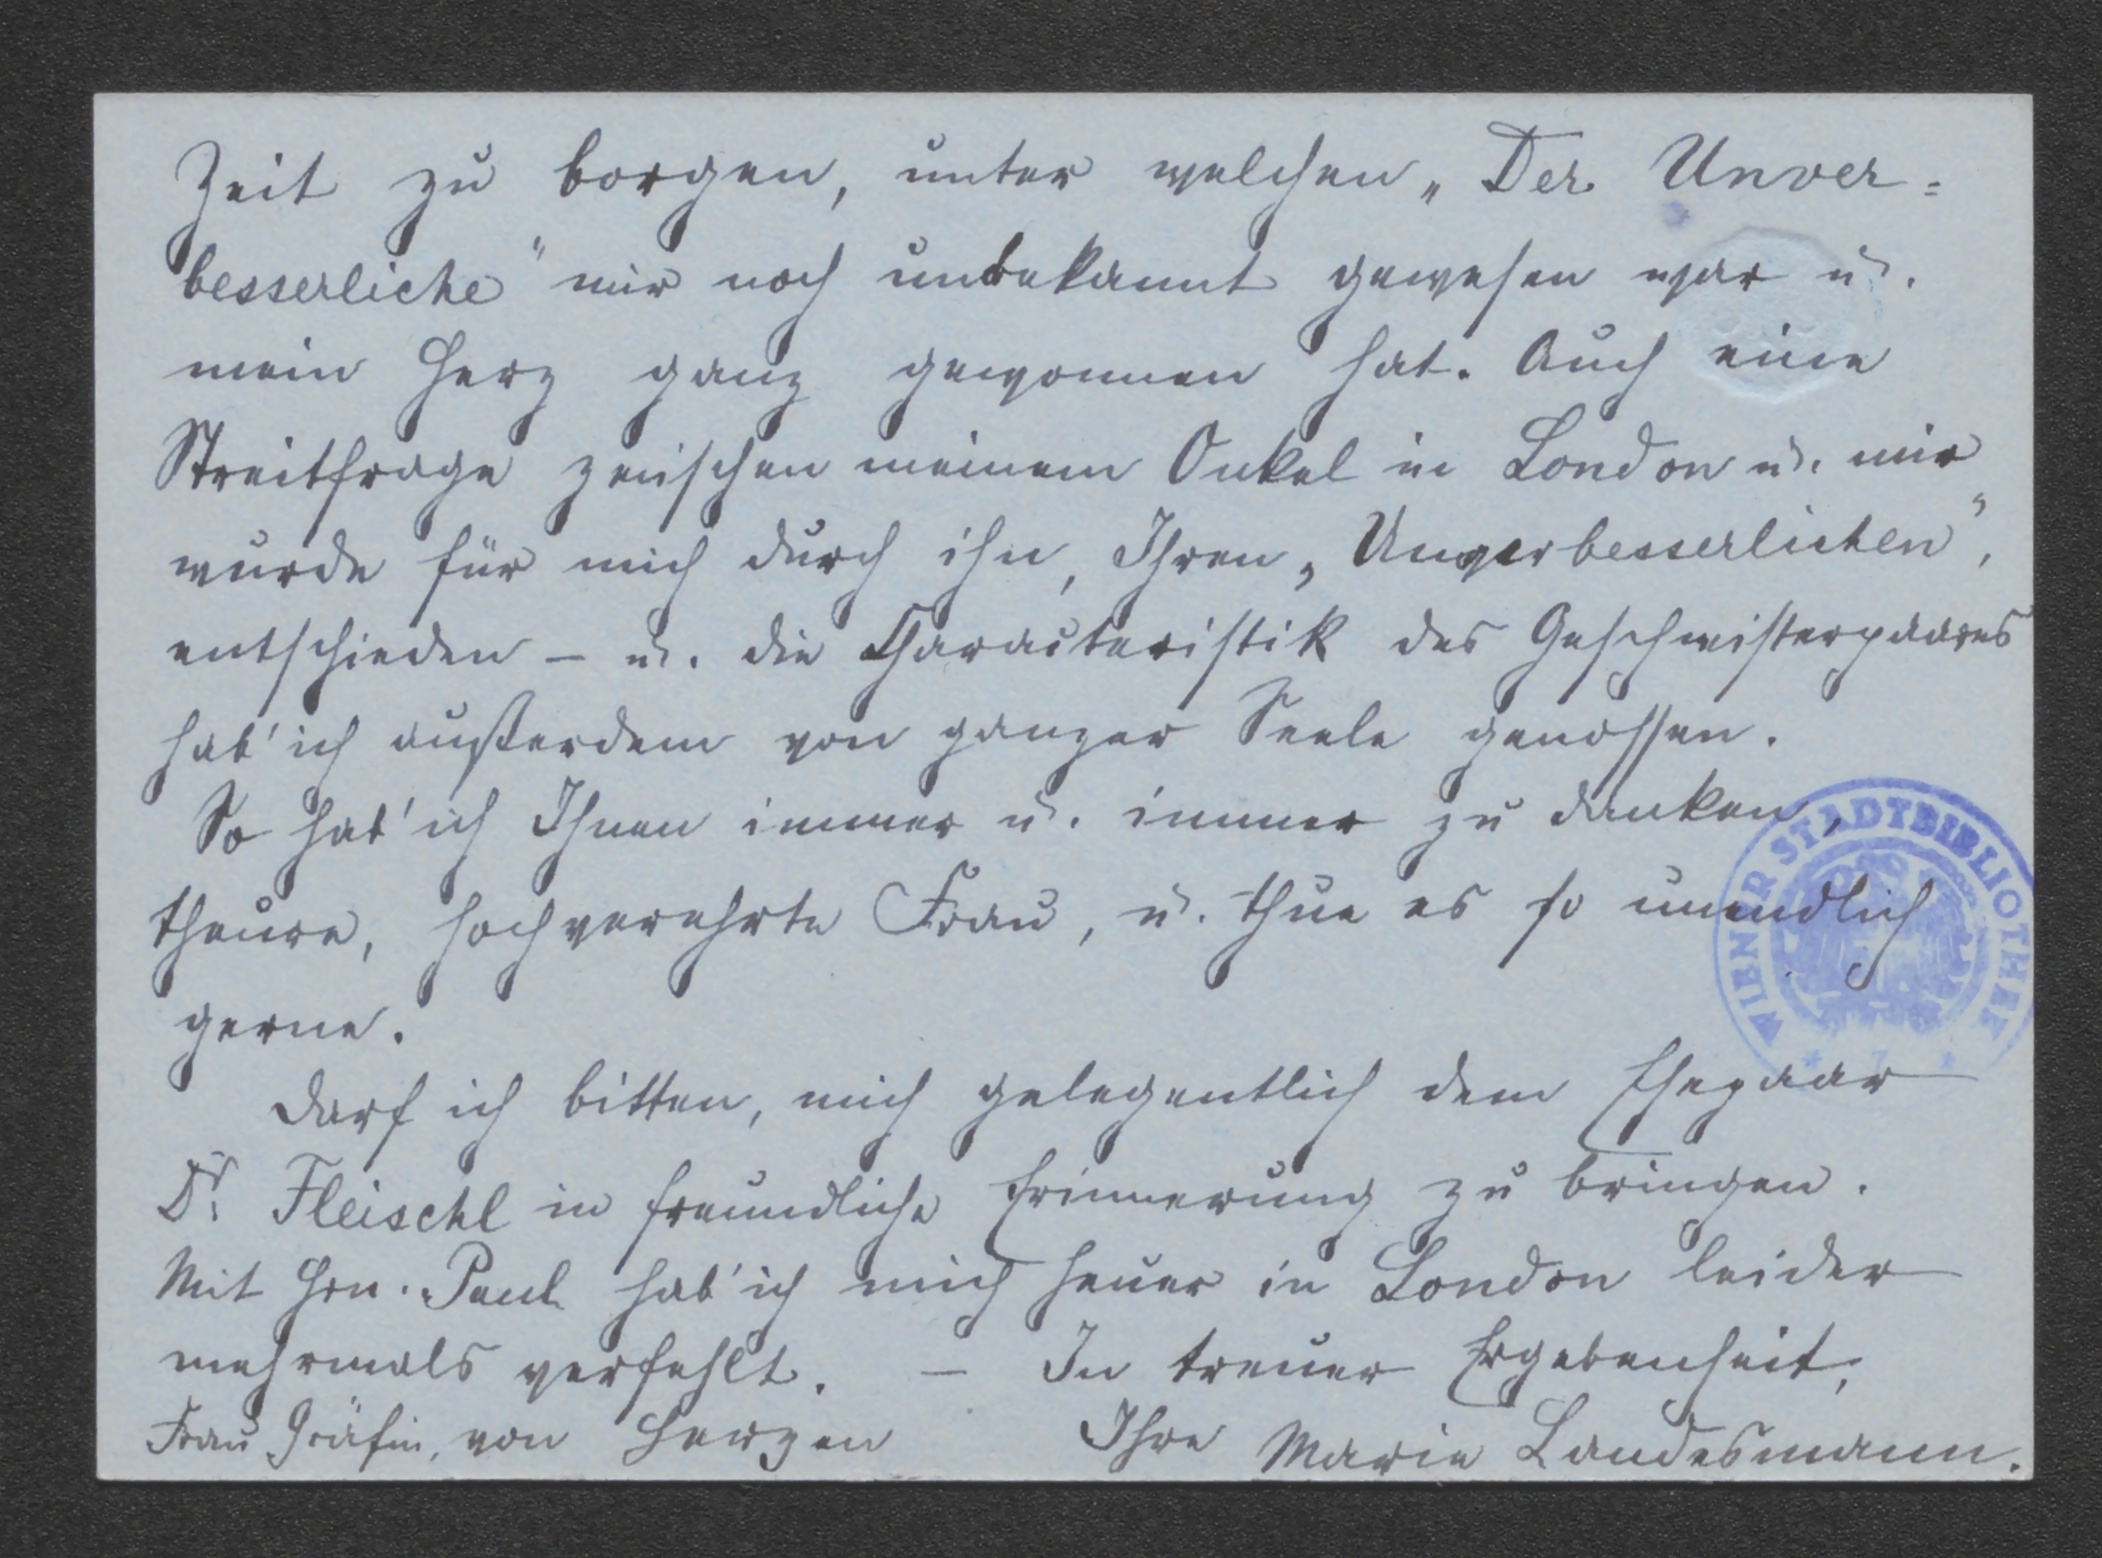 Zeit zu borgen, unter welchen „Der Unver=
besserliche" mir noch unbekannt gewesen war u.
mein Herz ganz gewonnen hat. Auch eine
Streitfrage zwischen meinem Onkel in London u. mir
wurde für mich durch ihn, Ihren „Unverbesserlichen",
entschieden – u. die Characteristik des Geschwisterpaares
hab' ich außerdem von ganzer Seele genossen.
So hab' ich Ihnen immer u. immer zu danken,
theure, hochverehrte Frau, u. thue es so unendlich
gerne.
Darf ich bitten, mich gelegentlich dem Ehepaar
Dr. Fleischl in freundliche Erinnerung zu bringen.
Mit Hrn. Paul hab' ich mich heuer in London leider
mehrmals verfehlt. – In treuer Ergebenheit,
Frau Gräfin, von Herzen Ihre Marie Landesmann.
WIENER STADTBIBLIOTHEK